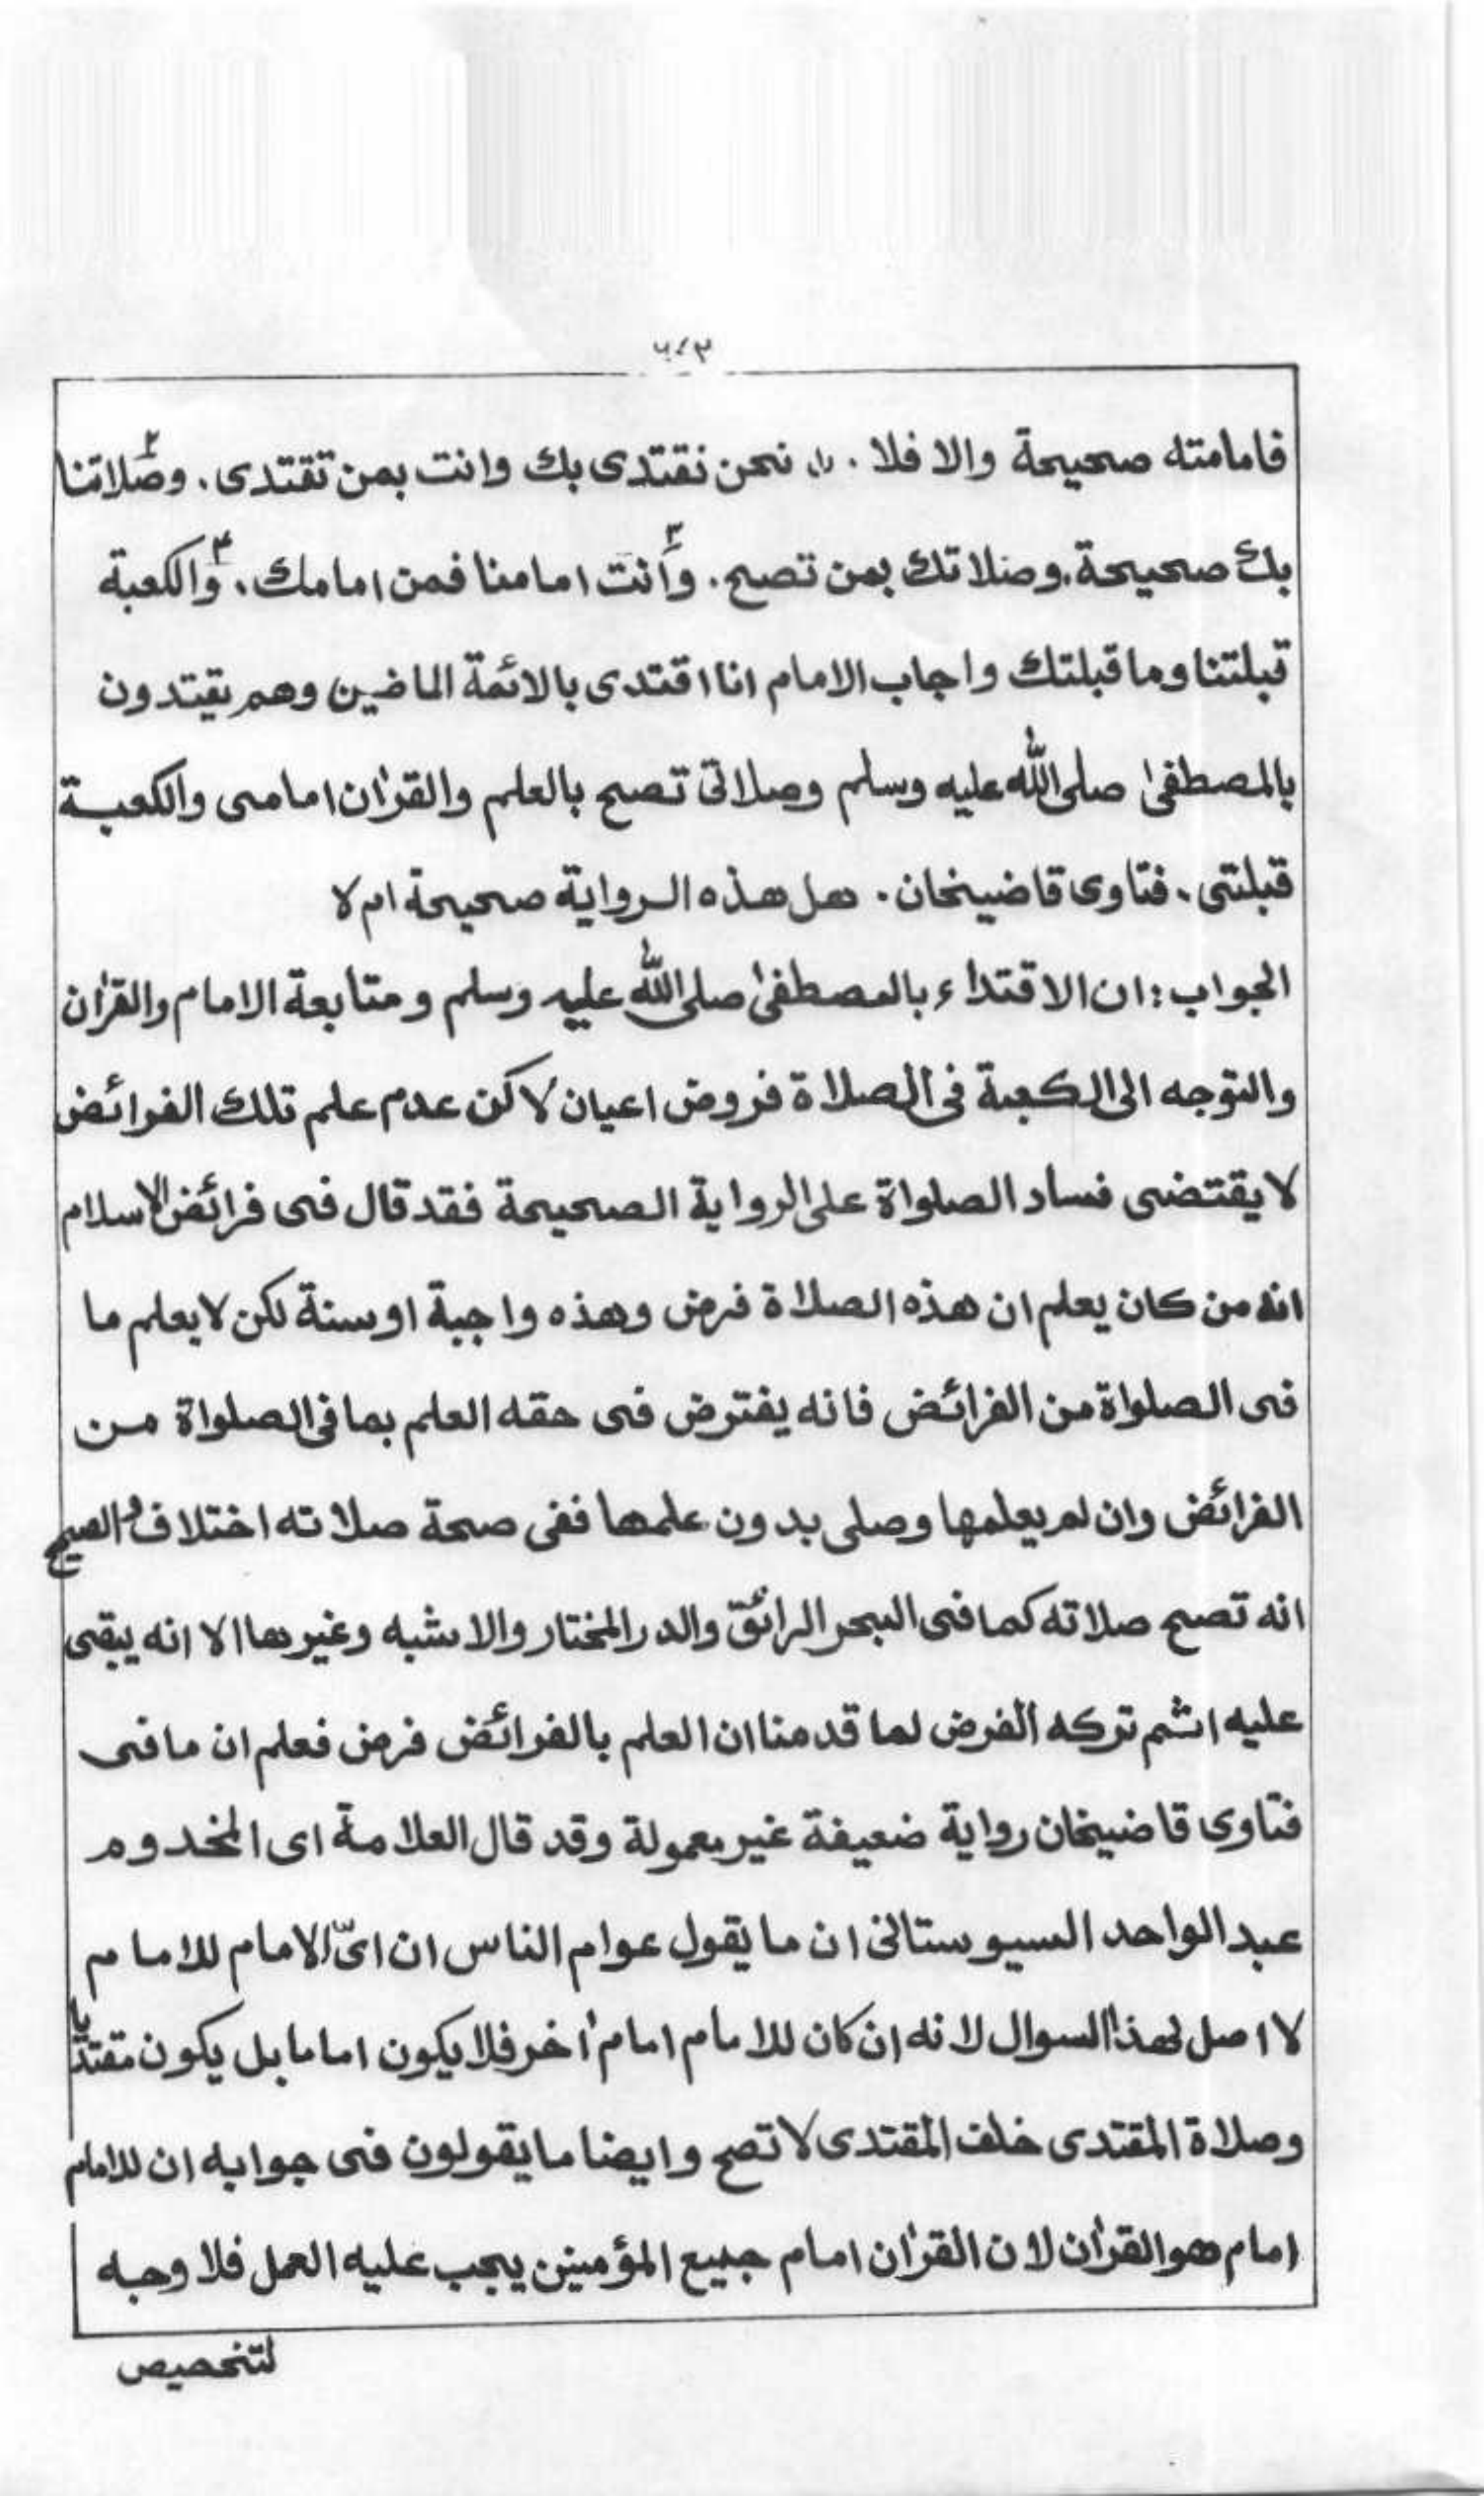 فامامته صحيحة والا فلا . (١) نحن نقتدى بك وانت بمن تقتدى . ٢ وصلاتنا
بك صحيحة . وصلاتك بمن تصح . ٣ وأنت امامنا فمن امامك . ٤ والكعبة
قبلتنا وما قبلتك واجاب الامام انا اقتدى بالائمة الماضين وهم يقتدون
بالمصطفىٰ صلى الله عليه وسلم وصلاتى تصح بالعلم والقرٰان امامى والكعبة
قبلتى . فتاوى قاضيخان . هل هذه الرواية صحيحة ام لا
الجواب : ان الاقتداء بالمصطفىٰ صلى الله عليه وسلم ومتابعة الامام والقرٰان
والتوجه الى الكعبة فى الصلاة فروض اعيان لاكن عدم علم تلك الفرائض
لا يقتضى فساد الصلواة على الرواية الصحيحة فقد قال فى فرائض الاسلام
انه من كان يعلم ان هذه الصلاة فرض وهذه واجبة او سنة لكن لا يعلم ما
فى الصلواة من الفرائض فانه يفترض فى حقه العلم بما فى الصلواة من
الفرائض وان لم يعلمها وصلى بدون علمها ففى صحة صلاته اختلاف والصحيح
انه تصح صلاته كما فى البحر الرائق والدر المختار والاشبه وغيرها الا انه يبقى
عليه اثم تركه الفرض لما قدمنا ان العلم بالفرائض فرض فعلم ان ما فى
فتاوى قاضيخان رواية ضعيفة غير معمولة وقد قال العلامة اى المخدوم
عبد الواحد السيوستانى ان ما يقول عوام الناس ان اىّ الامام للامام
لا اصل لهذا السوال لانه ان كان للامام امام اٰخر فلا يكون اماما بل يكون مقتديا
وصلاة المقتدى خلف المقتدى لا تصح وايضا ما يقولون فى جوابه ان للامام
امام هو القرٰان لان القرٰان امام جميع المؤمنين يجب عليه العمل فلا وجه
لتخصيص